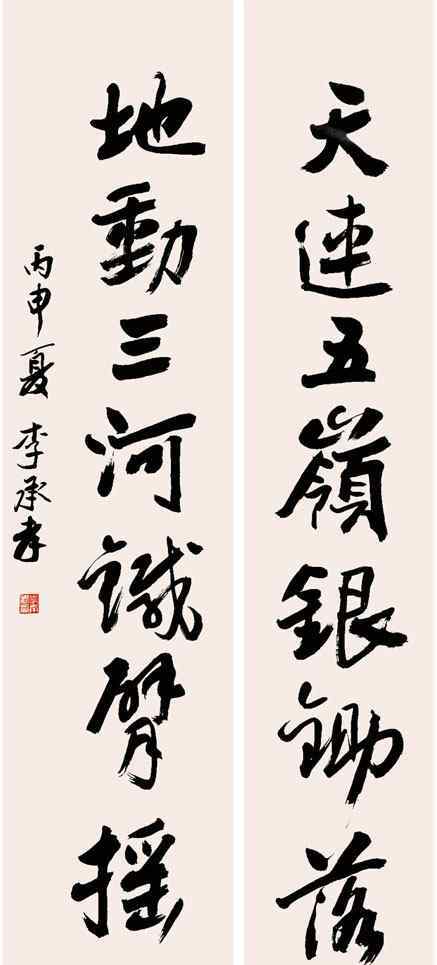 天連五嶺銀鋤落
地動三河鐵臂摇
丙申夏 李承孝